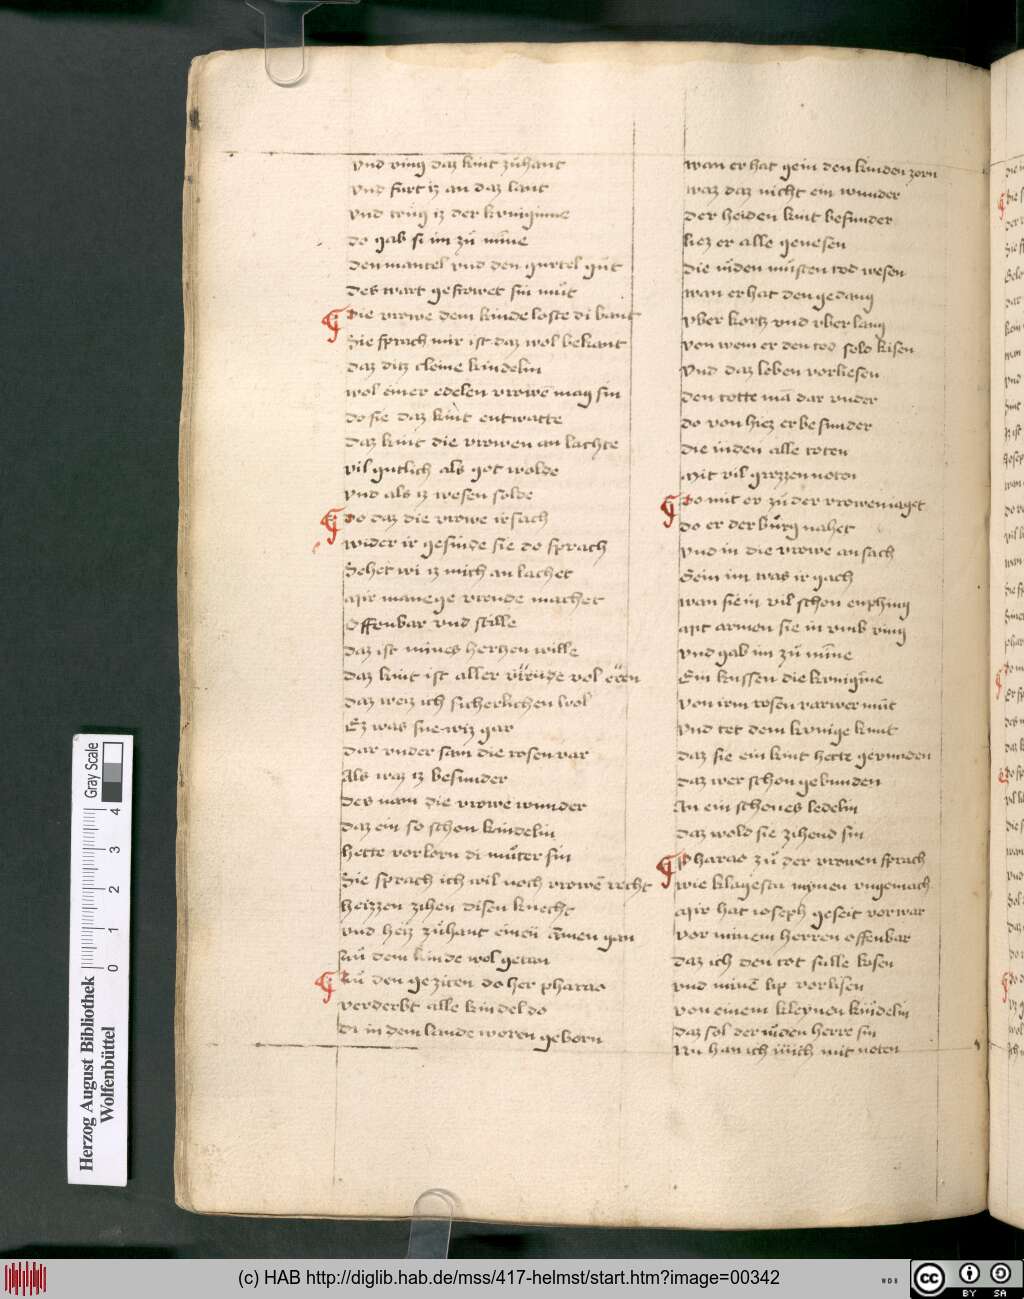 vnd ving daz kint zuhant
vnd furt iz an daz lant
vnd trug iz der kvniginne
do gab si im zu minne
den mantel vnd den gurtel gut
des wart gefrowet sin mut
Die vrowe dem kinde loste di bant
Sie sprach mir ist daz wol bekant
daz ditz cleine kindelin
wol einer edelen vrowē mag sin
do sie daz kint entwatte
daz kint die vrowen an lachte
vil gutlich als got wolde
vnd als iz wesen solde
Do daz die vrowe irsach
wider ir gesinde sie do sprach
Sehet wi iz mich an lachet
Mir manege vreude machet
Offenbar vnd stille
daz ist mines hertzen wille
daz kint ist aller vreude vol eren
daz weiz ich sicherlichen wol
Ez was sne wiz gar
dar vnder sam die rosen var
Als waz iz besunder
des nam die vrowe wunder
daz ein so schon kindelin
hette vorlorn di muter sin
Sie sprach ich wil noch vrowē recht
heizzen zihen disen knecht
vnd heiz zuhant einen ammen gan
zu dem kinde wol getan
Zu den geziten do her pharao
verderbt alle kindel do
di in dem lande woren geborn
wan er hat gein den kinden zorn
waz daz nicht ein wunder
der heiden kint besunder
liez er alle genesen
die iuden musten tod wesen
wan er hat den gedang
vber kortz vnd vber lang
von wem er den tod solo kisen
vnd daz leben vorliesen
den totte mā dar vnder
do von hiez er besunder
die iuden alle toten
Mit vil grozzen noten
Do mit er zu der vrowen iaget
do er der burg nahet
vnd in die vrowe an sach
Gein im was ir gach
wan sie in vil schon enphing
Mit armen sie in vmb ving
vnd gab im zu minne
Ein kussen die kvnigine
von irm rosen varwer munt
vnd tet dem kvnige kunt
daz sie ein kint hette gevunden
daz wer schon gebunden
An ein schones ledelin
daz wold sie zihend sin
Pharao zu der vrowen sprach
wie klagestu mynen vngemach
Mir hat ioseph geseit vor war
vor minem herren offenbar
daz ich den tot sulle kosen
vnd minē lip vorlisen
von einem kleynen kindelin
daz sol der iuden herre sin
Nu han ich mich mit noten
Herzog August Bibliothek
Wolfenbüttel
0 1 2 3 4
Gray Scale
(c) HAB http://diglib.hab.de/mss/417-helmst/start.htm?image=00342
WDB
cc BY SA